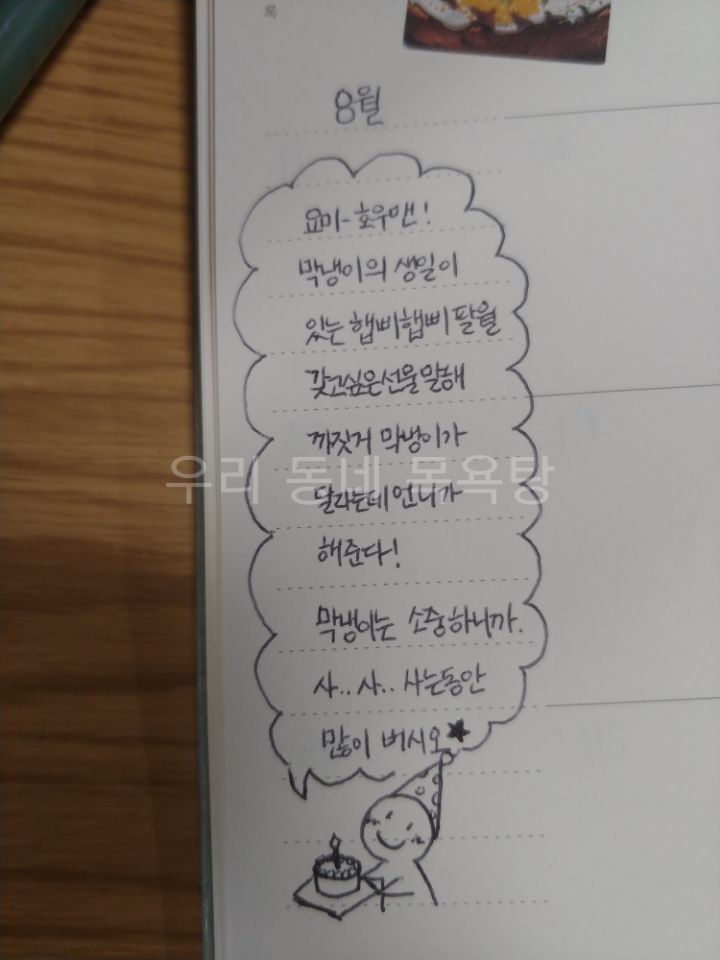 록
8월
요미-호우앤!
막냉이의 생일이
있는 햅삐햅삐 팔월
갖고싶은선물말해
까짓거 막냉이가
달라는데 언니가
해준다!
막냉이는 소중하니까.
사.. 사.. 사는동안
많이 버시오★
우리 동네 목욕탕